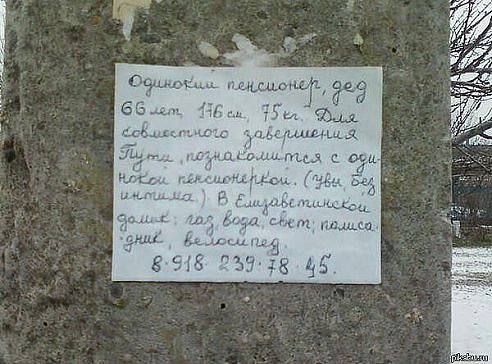 Одинокий пенсионер, дед
66 лет, 176 см, 75 кг. Для
совместного завершения
Пути, познакомится с оди-
нокой пенсионеркой. (увы, без
интима.) В Елизаветинской
домик: газ, вода, свет; полиса-
дник, велосипед.
8·918·239·78·45.
pikabu.ru